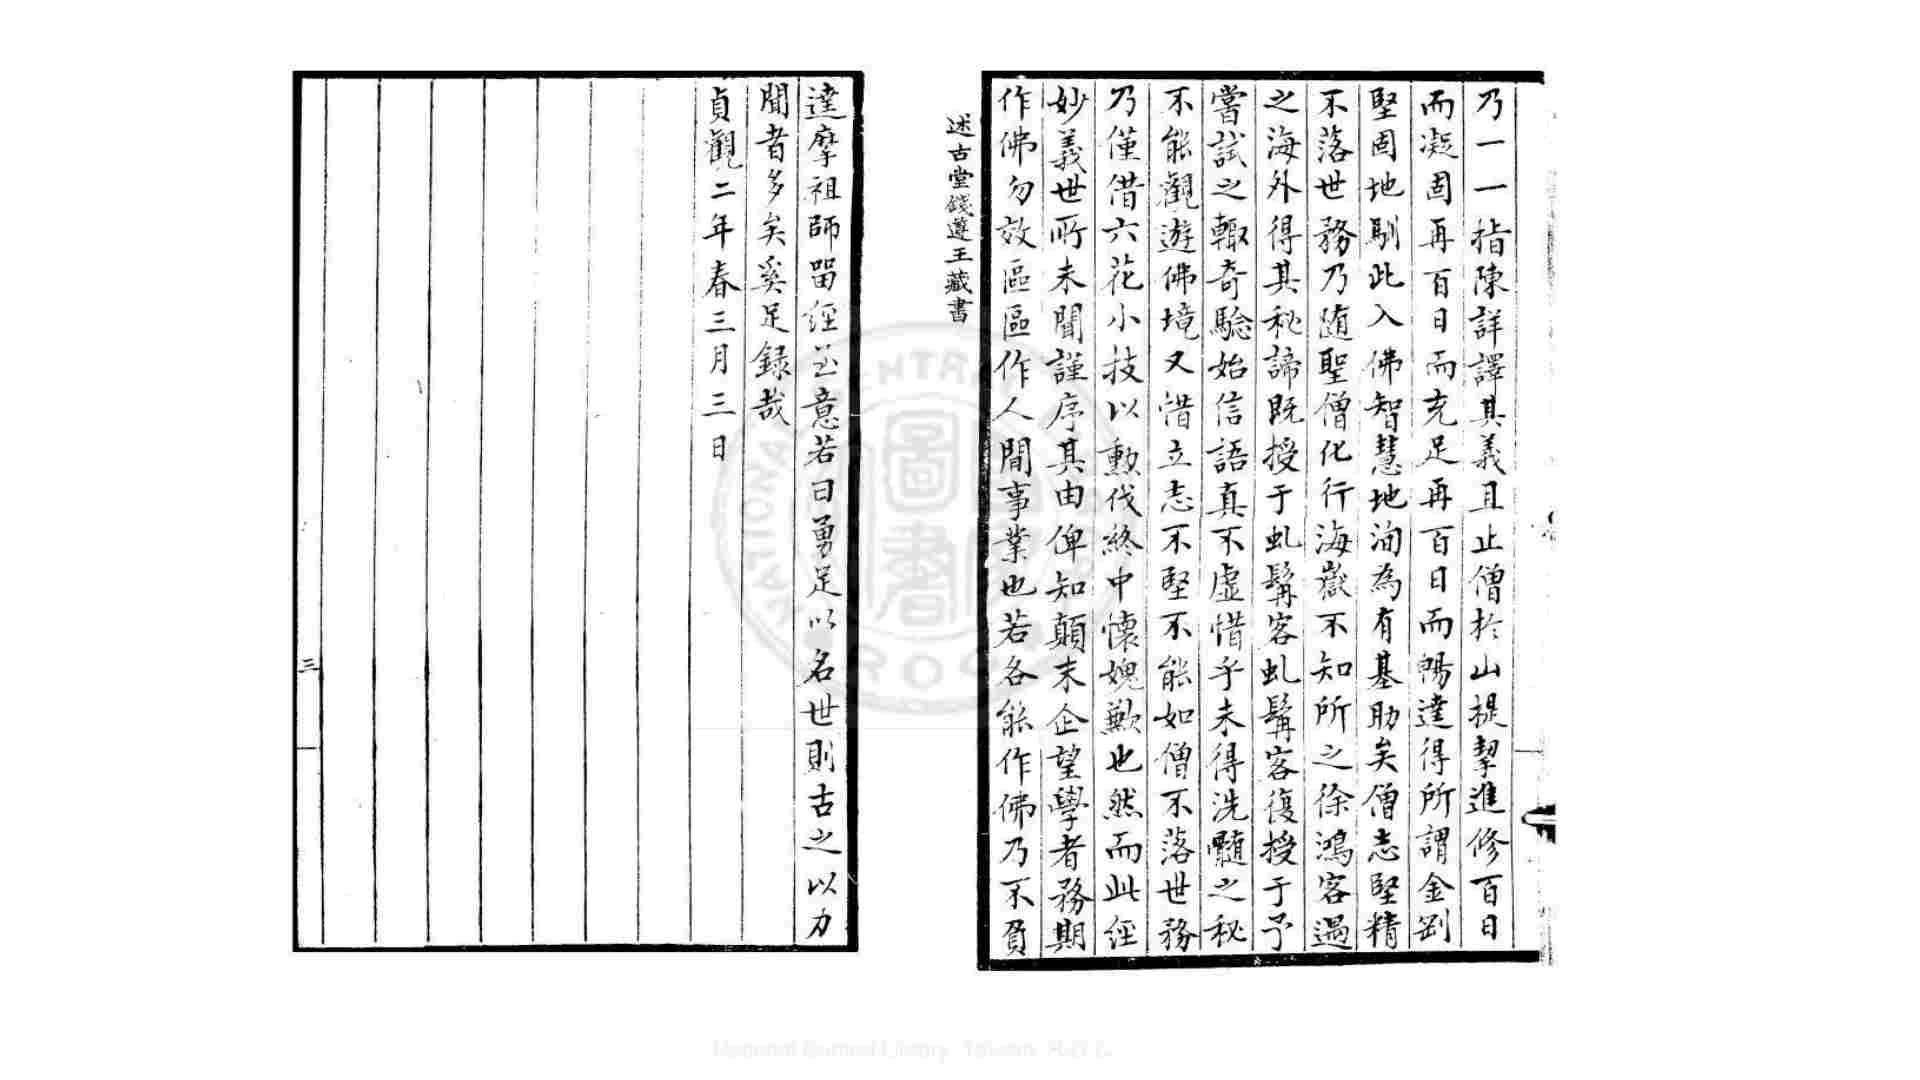 乃一一指陳詳譯其義且止僧於山提挈進修百日
而凝固再百日而充足再百日而暢達得所謂金剛
堅固地馴此入佛智慧地洵為有基助矣僧志堅精
不落世務乃随聖僧化行海嶽不知所之徐鴻客遇
之海外得其秘諦既授于虬髯客虬髯客復授于予
嘗試之輙奇驗始信語真不虛惜乎未得洗髓之秘
不能觀遊佛境又惜立志不堅不能如僧不落世務
乃僅借六花小技以勳伐終中懷媿歉也然而此經
妙義世所未聞謹序其由俾知顛末企望學者務期
作佛勿效區區作人間事業也若各能作佛乃不負
述古堂錢遵王藏書
達摩祖師畱經之意若曰勇足以名世則古之以力
聞者多矣奚足録哉
貞觀二年春三月三日
三